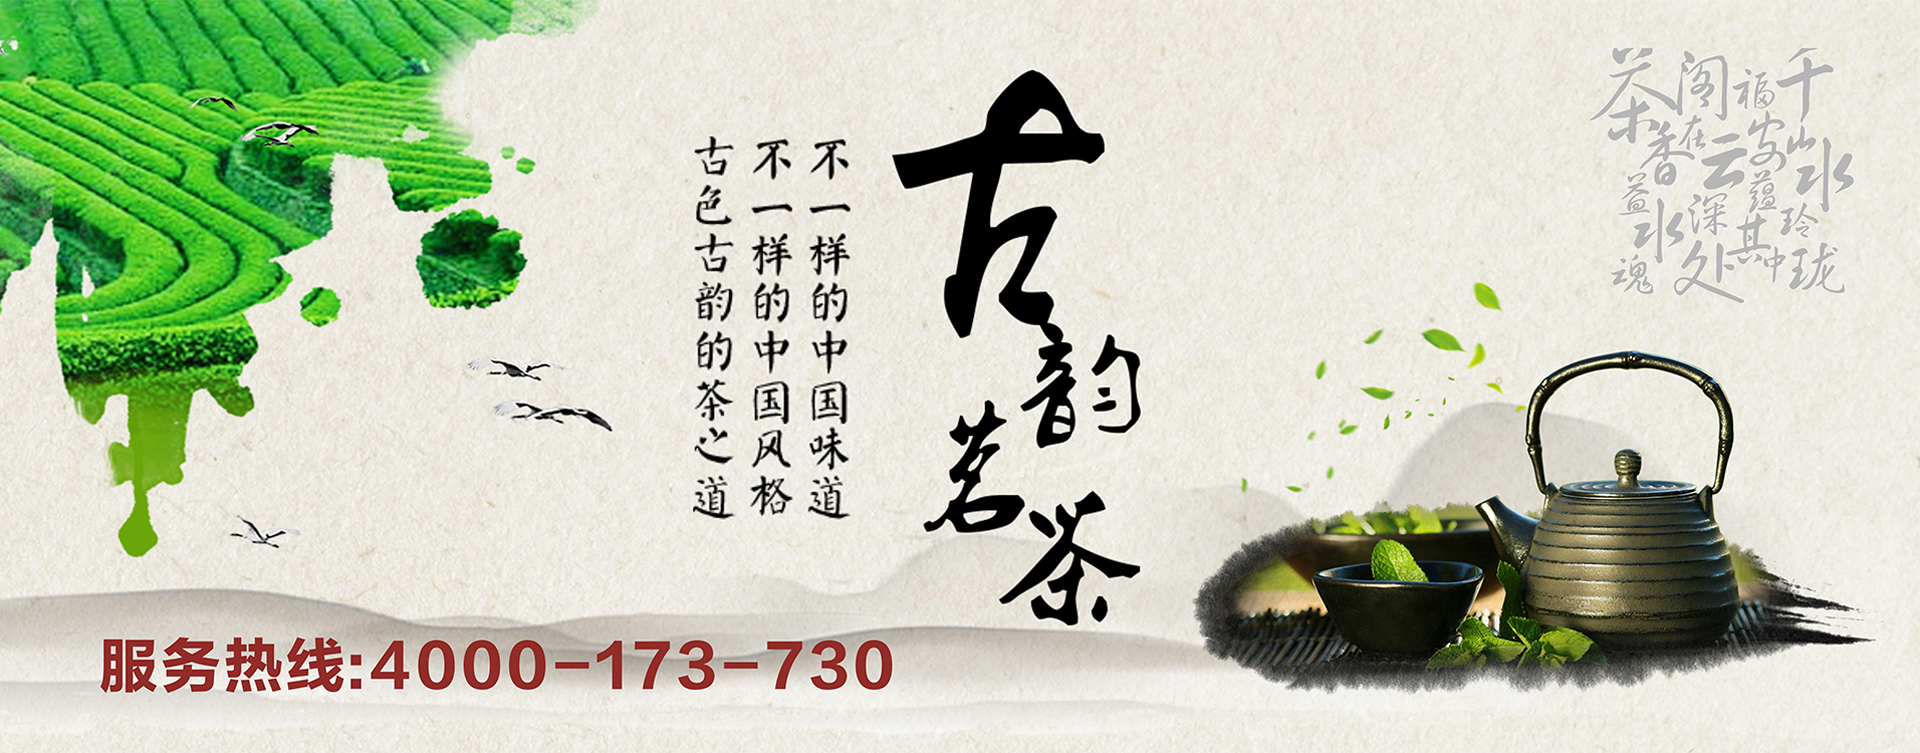 千山水玲珑
福安蕴其中
阁在云深处
茶香益水魂
古韵茗茶
不一样的中国味道
不一样的中国风格
古色古韵的茶之道
服务热线:4000-173-730